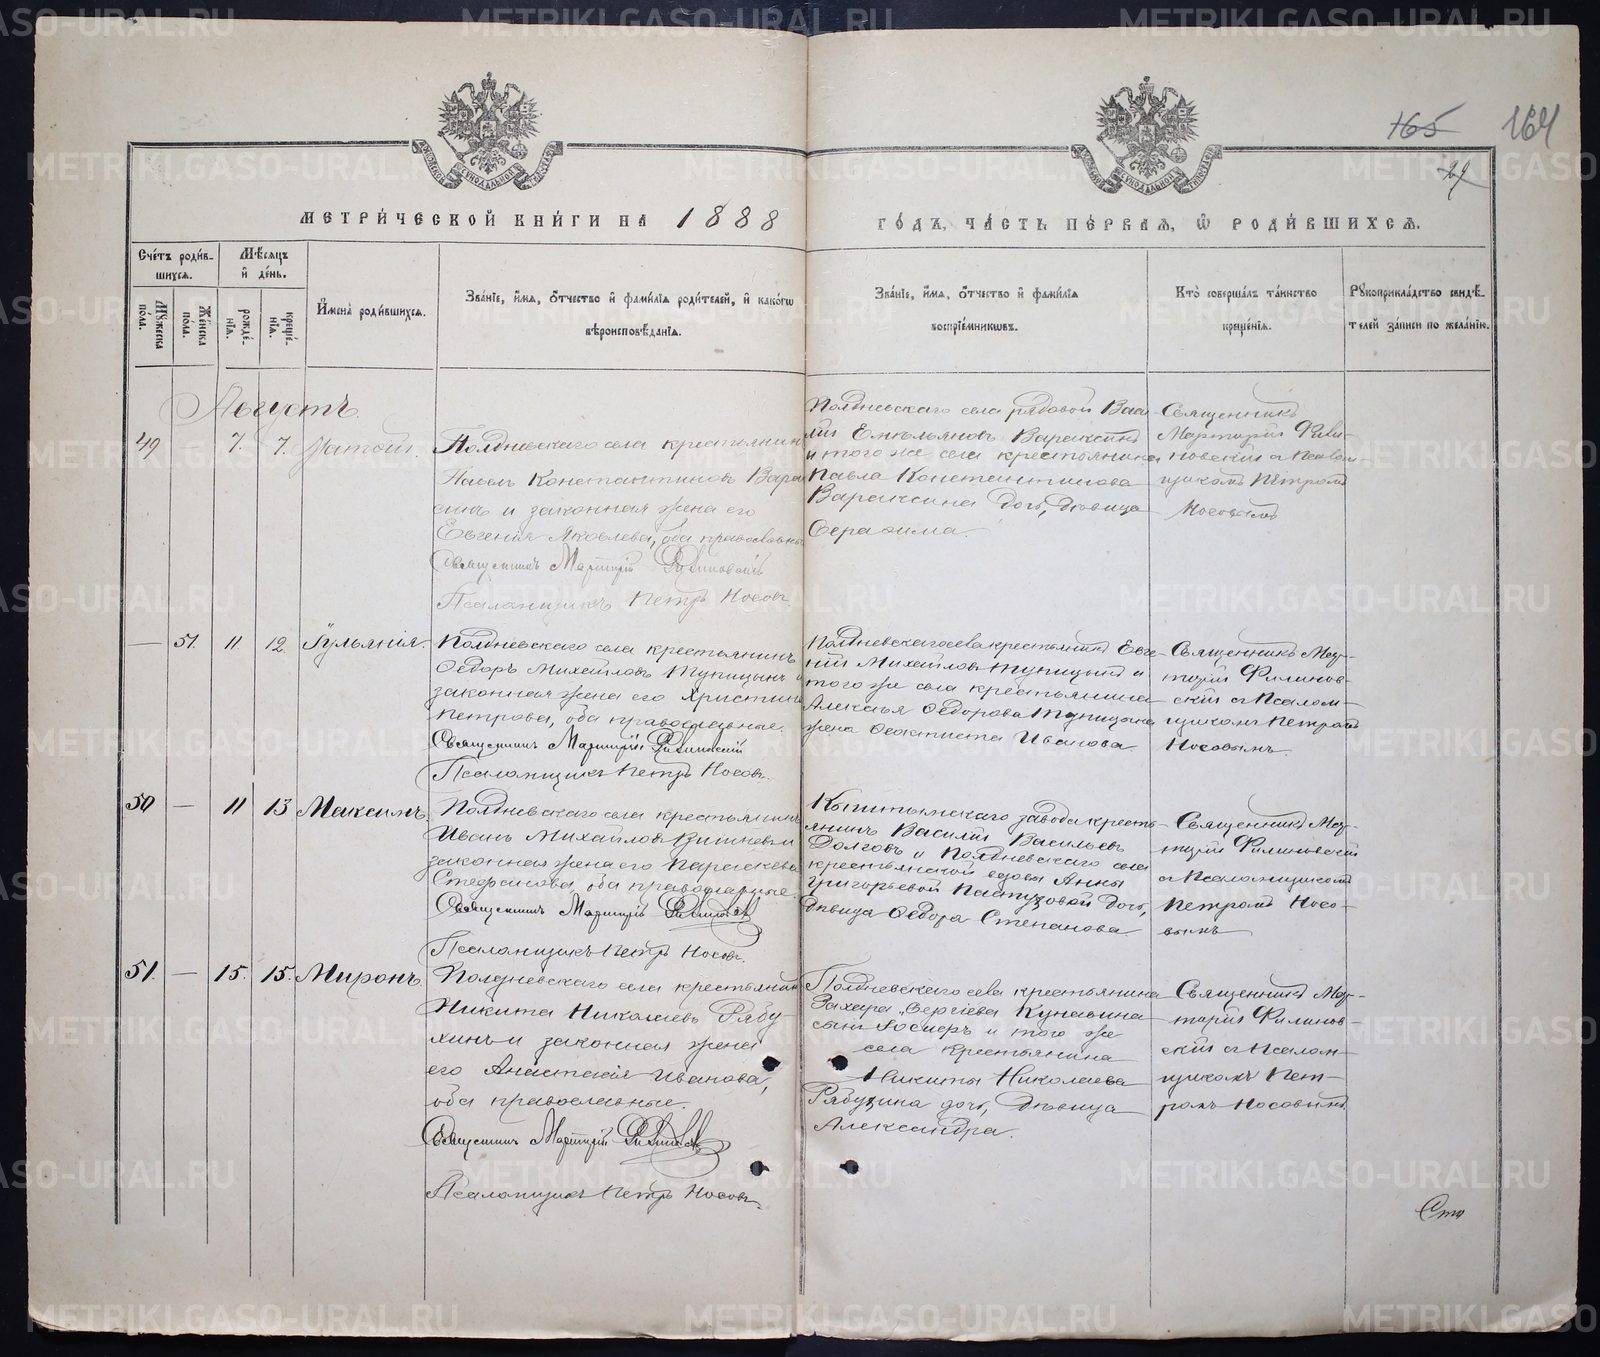 165 164
29
МЕТРИ́ЧЕСКОЙ КНИ́ГИ НА 1888
ГО́ДЪ, ЧА́СТЬ ПЕ́РВАЯ, Ѡ РОДИ́ВШИХСЯ.
Сче́тъ роди́в-
шихся.
Мꙋ́жеска
по́ла.
Же́нска
по́ла.
Мѣ́сяцъ
и҆ де́нь.
рожде́-
нїя.
креще́-
нїя.
И҆мена̀ роди́вшихся.
Зва́нїе, и҆́мя, ѻ҆́тчество и҆ фами́лїя роди́телей, и҆ како́гѡ
вѣроисповѣ́данїя.
Зва́нїе, и҆́мя, ѻ҆́тчество и҆ фами́лїя
воспрїе́мникѡвъ.
Кто̀ соверша́лъ та́инство
креще́нїя.
Рꙋкоприкла́дство свидѣ́-
телей за́писи по жела́нїю.
Августъ
49 — 7. 7.
Полдневскаго села крестьянин
Павелъ Константиновъ Варак
синъ и законная жена его
Евгения Яковлева, оба православны
Священникъ Мартирій Филиновскій
Псаломщикъ Петръ Носовъ.
Полдневскаго села рядовой Васи-
лій Емельяновъ Вараксинъ
и того же села крестьянина
Павла Константинова
Вараксина дочь, девица
Серафима.
Священникъ
Мартирій Фили-
новский съ Псалом-
щикомъ Петромъ
Носовымъ
— 51. 11 12. Іульянія.
Полдневскаго села крестьянинъ
Ѳедоръ Михайловъ Тупицынъ и
законная жена его Христина
Петрова, оба православные.
Священникъ Мартирій Филиновскій
Псаломщикъ Петръ Носовъ.
Полдневскаго села крестьянинъ Евге-
ній Михайловъ Тупицынъ и
того же села крестьянина
Алексѣя Ѳедорова Тупицына
жена Ѳеоктиста Иванова
Священникъ Мар-
тирій Филинов-
скій съ Псалом-
щикомъ Петромъ
Носовымъ.
50 — 11 13 Максимъ
Полдневскаго села крестьянинъ
Иванъ Михайловъ
законная жена его Параскева
Стефанова, оба православные.
Священникъ Мартирій Филиновск
Псаломщикъ Петръ Носовъ.
Кыштымскаго завода кресть-
янинъ Василій Васильевъ
Долговъ и Полдневскаго села
крестьянской вдовы Анны
Григорьевой Пастуховой дочь,
дѣвица Ѳедора Степанова
Священникъ Мар-
тирій Филиновскій
съ Псаломщикомъ
Петромъ Носо-
вымъ
51. — 15. 15. Миронъ
Полдневскаго села крестьянин
Никита Николаевъ Рябу-
хинъ и законная жена
его Анастасія Иванова,
оба православные.
Священникъ Мартирій Филиновск
Псаломщикъ Петръ Носовъ.
Полдневскаго села крестьянина
Захара Сергіева Кунавина
сынъ и того же
села крестьянина
Никиты Николаева
Рябухина дочь, дѣвица
Александра.
Священникъ Мар-
тирій Филинов-
скій съ Псалом-
щикомъ Пет-
ромъ Носовымъ
Сто
METRIKI.GASO-URAL.RU